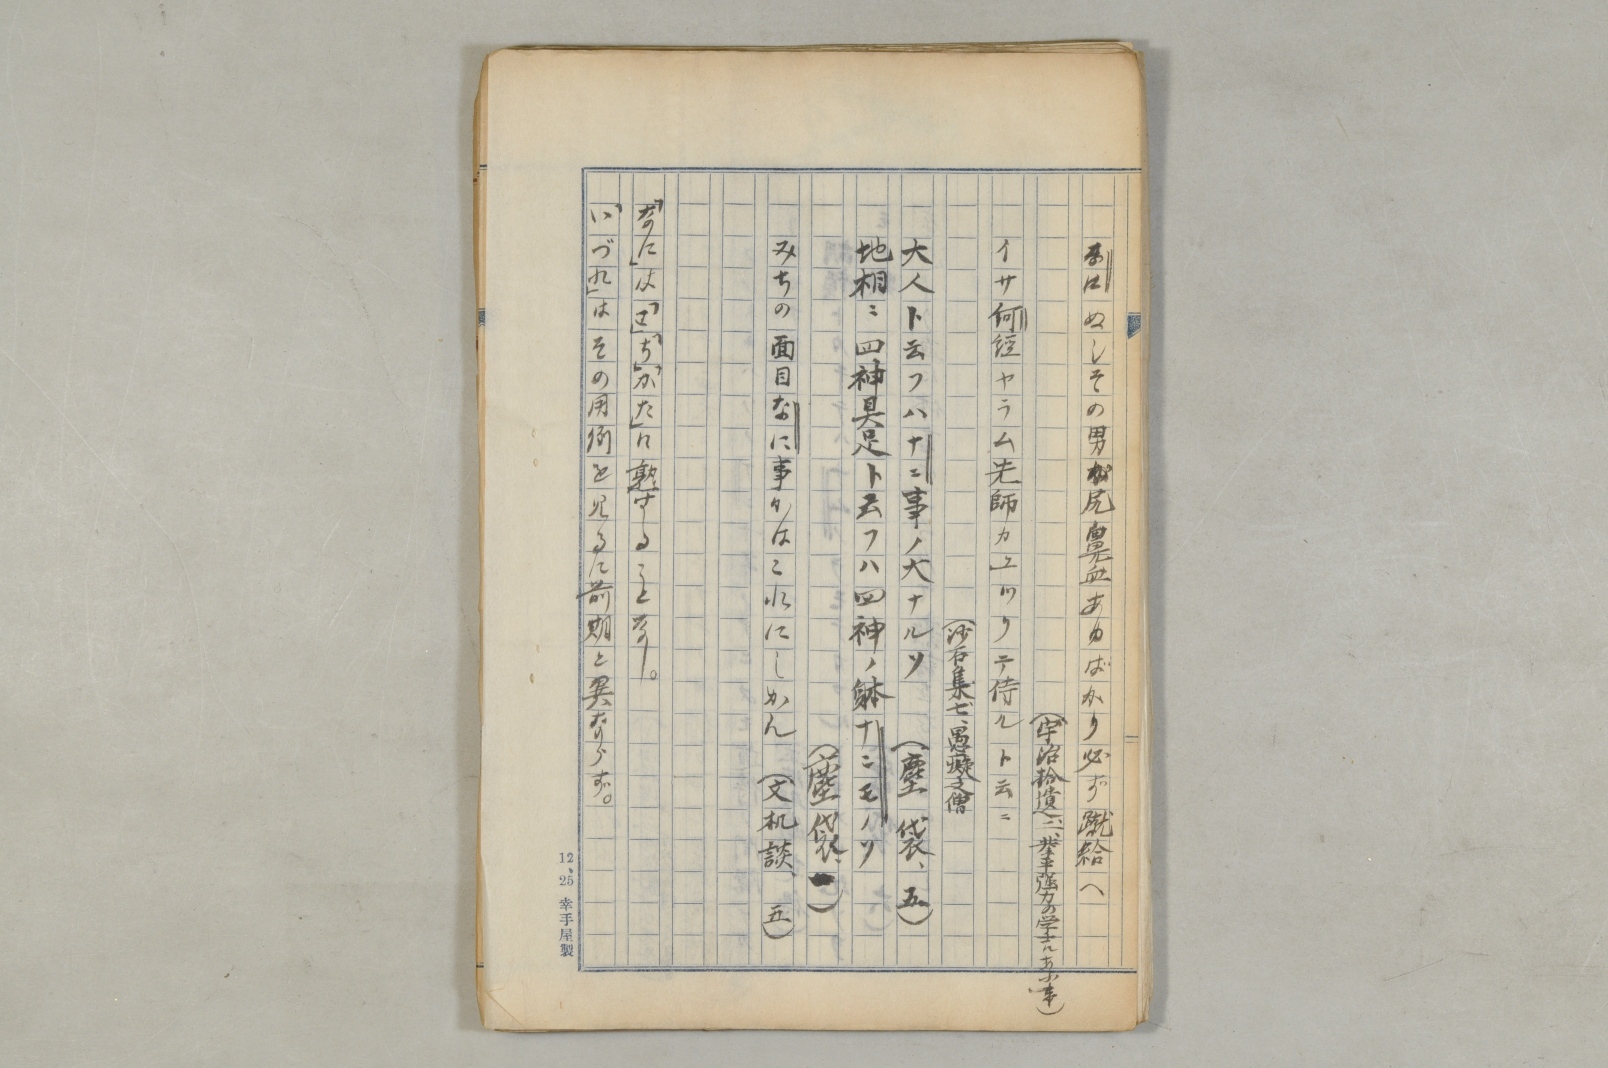 なにぬしその男が尻鼻血あゆばかり必ず蹴給へ
(宇治拾遺二、成村強力の学士にあふ事)
イサ何経ヤラム先師カ上ツリテ侍ルト云ニ
(沙石集七、愚癡之僧
大人ト云フハナニ事ノ大ナルソ (塵袋、五)
地相ニ四神具足ト云フハ四神ノ躰ナニモノソ
(塵袋、一)
みちの面目なに事かはこれにしかん (文机談、五)
「なに」は「こ」「ち」「かた」に熟することなし。
「いづれ」はその用例を見るに前期と異ならず。
12、25 幸手屋製